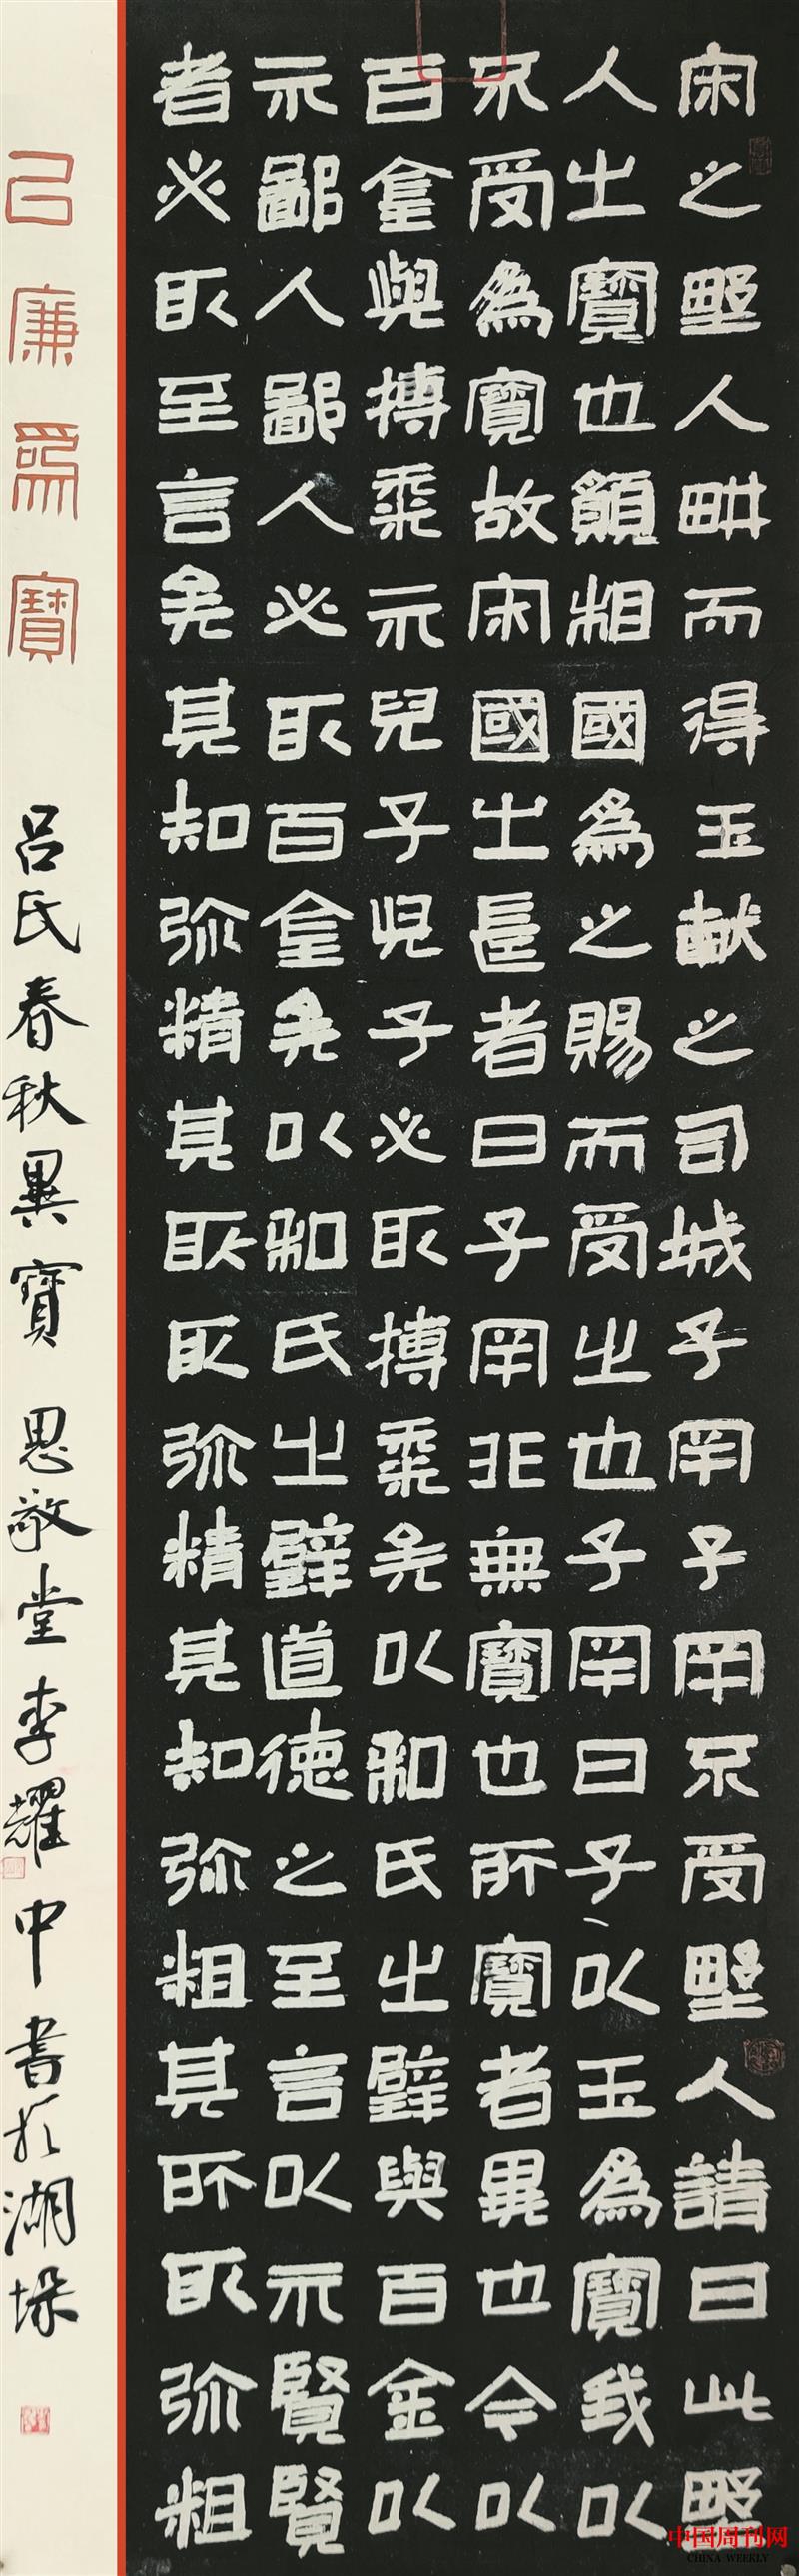 宋之野人畊而得玉献之司城子罕子罕不受野人請曰此野
人之寶也願相國為之賜而受之也子罕曰子以玉為寶我以
不受為寶故宋國之長者曰子罕非無寶也所寶者異也今以
百金與搏黍示兒子兒子必取搏黍矣以和氏之璧與百金以
示鄙人鄙人必取百金矣以和氏之璧道德之至言以示賢賢
者必取至言矣其知弥精其所取弥精其知弥粗其所取弥粗
以廉為寶
呂氏春秋異寶 思敬堂李耀中書於湖垛
中国周刊网
CHINA WEEKLY